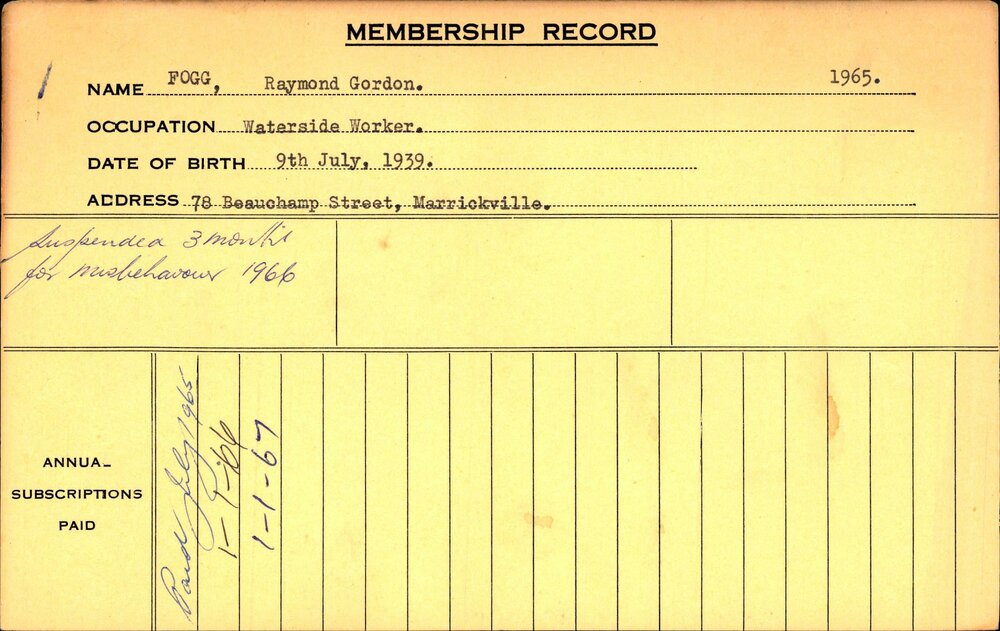 MEMBERSHIP RECORD
NAME FOGG, Raymond Gordon. 1965.
OCCUPATION Waterside Worker.
DATE OF BIRTH 9th July, 1939.
ADDRESS 78 Beauchamp Street, Marrickville.
Suspended 3 months
for misbehavour 1966
ANNUAL
SUBSCRIPTIONS
PAID
Paid July 1965
1-1-66
1-1-67